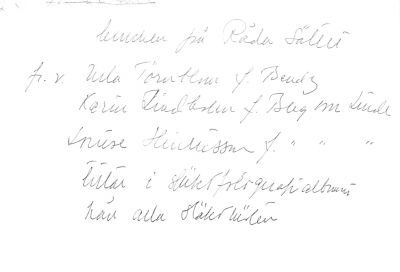 lunchen på Råda Säteri
fr. v. Ulla Törnblom f. Bendz
Karin Lindholm f. Berg von Linde
Louise Henricsson f. " " "
tittar i släktfotografialbumet
från alla släktleden